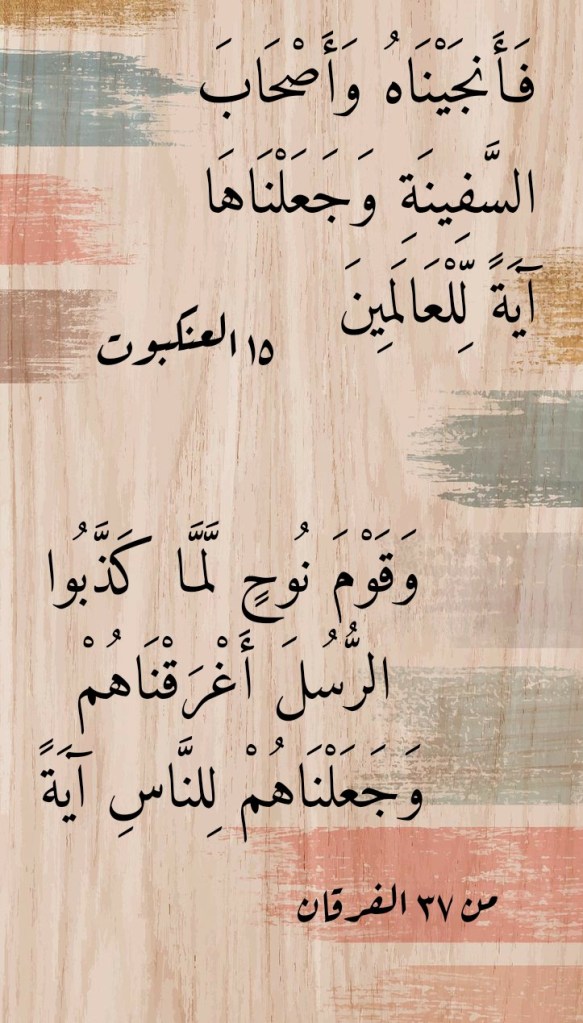 فَأَنجَيْنَاهُ وَأَصْحَابَ
السَّفِينَةِ وَجَعَلْنَاهَا
آيَةً لِّلْعَالَمِينَ
١٥ العنكبوت
وَقَوْمَ نُوحٍ لَّمَّا كَذَّبُوا
الرُّسُلَ أَغْرَقْنَاهُمْ
وَجَعَلْنَاهُمْ لِلنَّاسِ آيَةً
من ٣٧ الفرقان